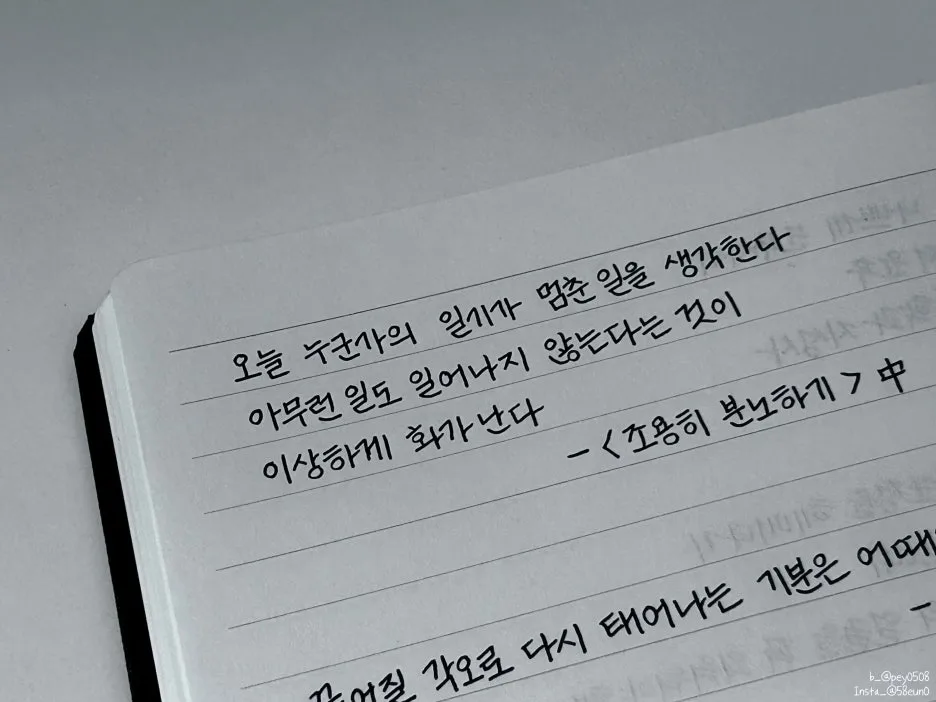 오늘 누군가의 일기가 멈춘 일을 생각한다
아무런 일도 일어나지 않는다는 것이
이상하게 화가 난다
- <조용히 분노하기> 中
각오로 다시 태어나는 기분은 어때
-
b_@pey0508
Insta_@58eun0